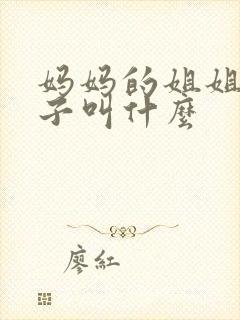 妈妈的姐姐
子叫什麽
廖紅